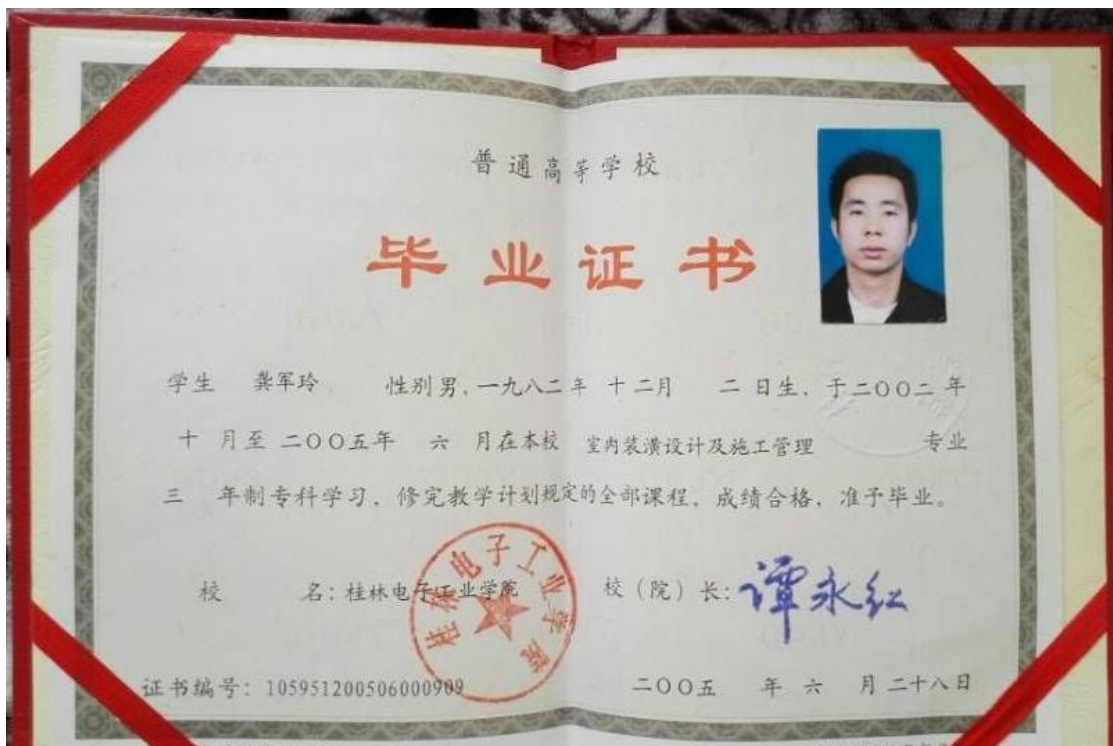 普通高等学校
毕业证书
学生 龚军玲 性别男,一九八二年 十二月 二日生、于二〇〇二年
十 月至 二〇〇五年 六 月在本校 室内装潢设计及施工管理 专业
三 年制专科学习,修完教学计划规定的全部课程,成绩合格,准予毕业。
校 名:桂林电子工业学院 校(院)长:谭永红
桂林电子工业学院
证书编号:105951200506000909 二〇〇五 年 六 月 二十八日